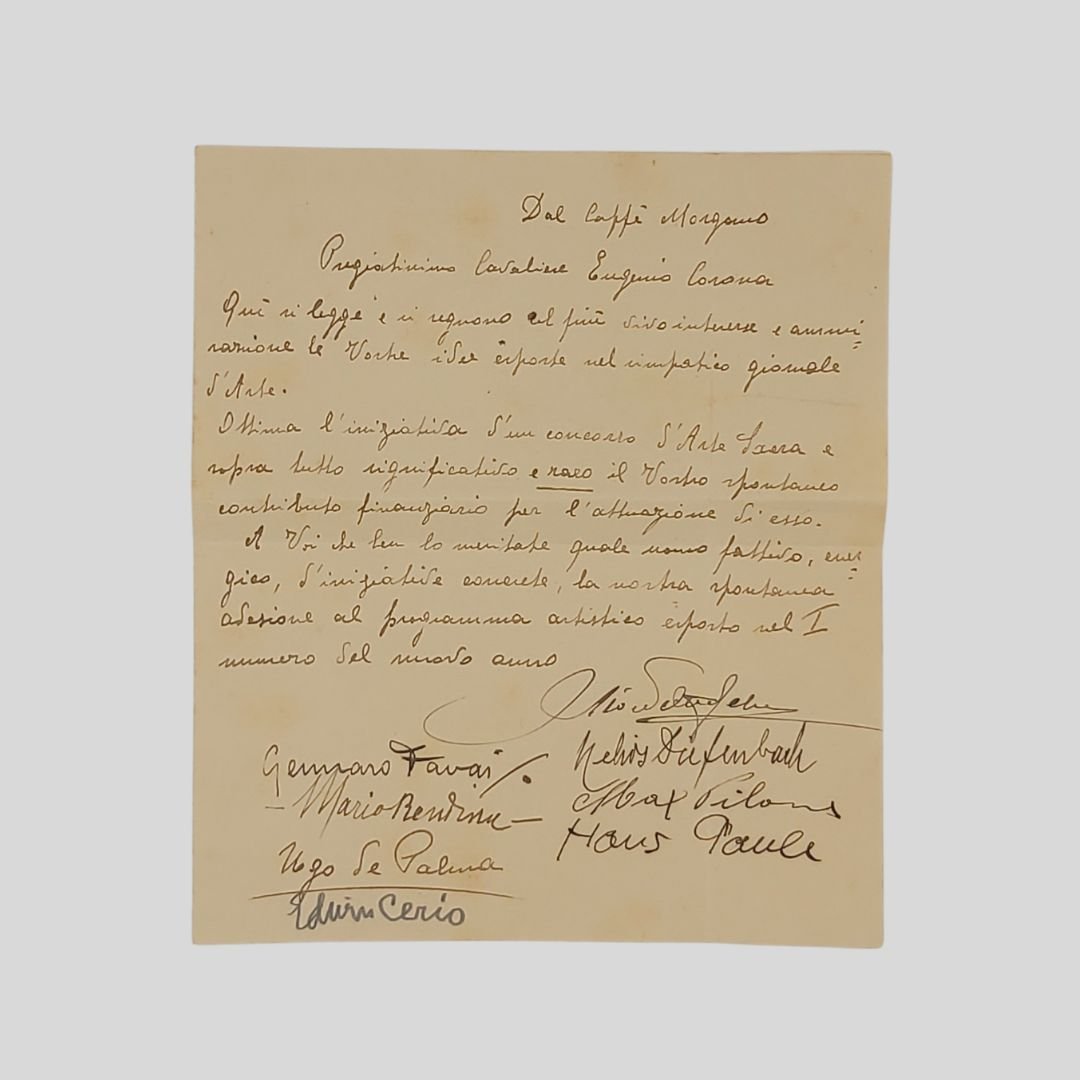 Dal Caffè Morgano
Pregiatissimo Cavaliere Eugenio Corona
Quì si legge e si seguono col più vivo interesse e ammi=
razione le Vostre idee esposte nel simpatico giornale
d'Arte.
Ottima l'iniziativa d'un concorso d'Arte Sacra e
sopra tutto significativo e raro il Vostro spontaneo
contributo finanziario per l'attuazione di esso.
A Voi che ben lo meritate quale uomo fattivo, ener=
gico, d'iniziative concrete, la nostra spontanea
adesione al programma artistico esposto nel I
numero del nuovo anno
Gennaro Favai
Helios Diefenbach
Mario
Max Pilone
Ugo de Palma
Hans Paule
Edwin Cerio